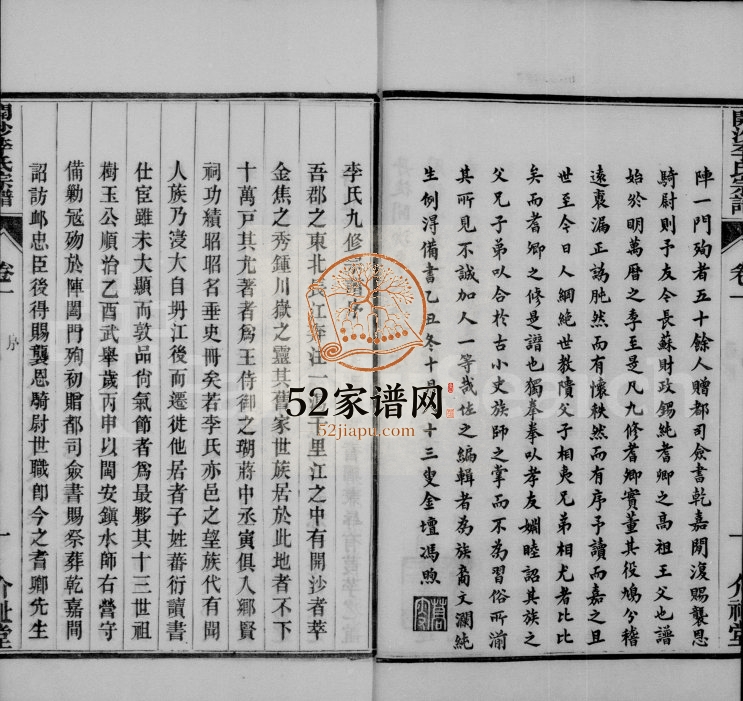 陣一門殉者五十餘人贈都司僉書乾嘉間復賜襲恩
騎尉則予友令長蘇財政錫純耆卿之高祖王父也譜
始於明萬曆之季至是凡九修耆卿實董其役鳩兮稽
遠裒漏正譌肫然而有懷秩然而有序予讀而嘉之且
世至今日人綱絕世教隤父子相夷兄弟相尤者比比
矣而耆卿之修是譜也獨拳拳以孝友婣睦詔其族之
父兄子弟以合於古小史族師之掌而不為習俗所湔
其所見不誠加人一等哉佐之編輯者為族裔文瀾純
生例得備書乙丑冬十月 十三叟金壇馮煦
開沙李氏宗譜
卷一
一
介祉堂
李氏九修 序
吾郡之東北長江 注一 千里江之中有開沙者萃
金焦之秀鍾川嶽之靈其舊家世族居於此地者不下
十萬戸其尤著者爲王侍御之瑚蔣中丞寅俱入鄉賢
祠功績昭昭名垂史冊矣若李氏亦邑之望族代有聞
人族乃寖大自丹江後而遷徙他居者子姓蕃衍讀書
仕宦雖未大顯而敦品尙氣節者爲最夥其十三世祖
樹玉公順治乙酉武舉歲丙申以閩安鎭水師右營守
備勦冦殁於陣闔門殉初贈都司僉書賜祭葬乾嘉間
詔訪䘏忠臣後得賜襲恩騎尉世職卽今之耆卿先生
開沙李氏宗譜
卷一
序
一
介祉堂
52家谱网
52jiapu.com